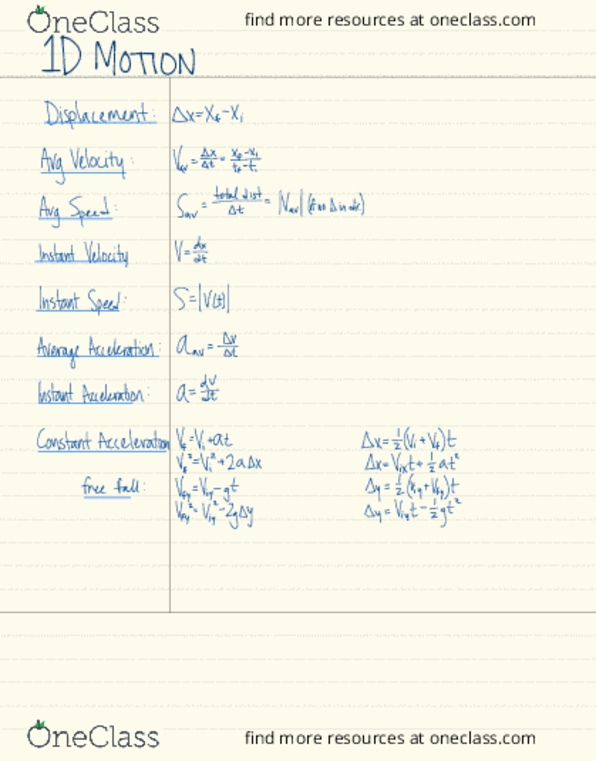 OneClass find more resources at oneclass.com
1D MOTION
Displacement: Δx = x_f - x_i
Avg Velocity: V_av = Δx/Δt = (x_f - x_i)/(t_f - t_i)
Avg Speed: S_av = total dist/Δt = |V_av| (if no Δ in dir.)
Instant Velocity V = dx/dt
Instant Speed: S = |V(t)|
Average Acceleration: a_av = Δv/Δt
Instant Acceleration: a = dV/dt
Constant Acceleration V_f = V_i + at Δx = ½(V_i + V_f)t
V_f² = V_i² + 2aΔx Δx = V_ix t + ½at²
free fall: V_fy = V_iy - gt Δy = ½(V_iy + V_fy)t
V_fy² = V_iy² - 2gΔy Δy = V_iy t - ½gt²
OneClass find more resources at oneclass.com